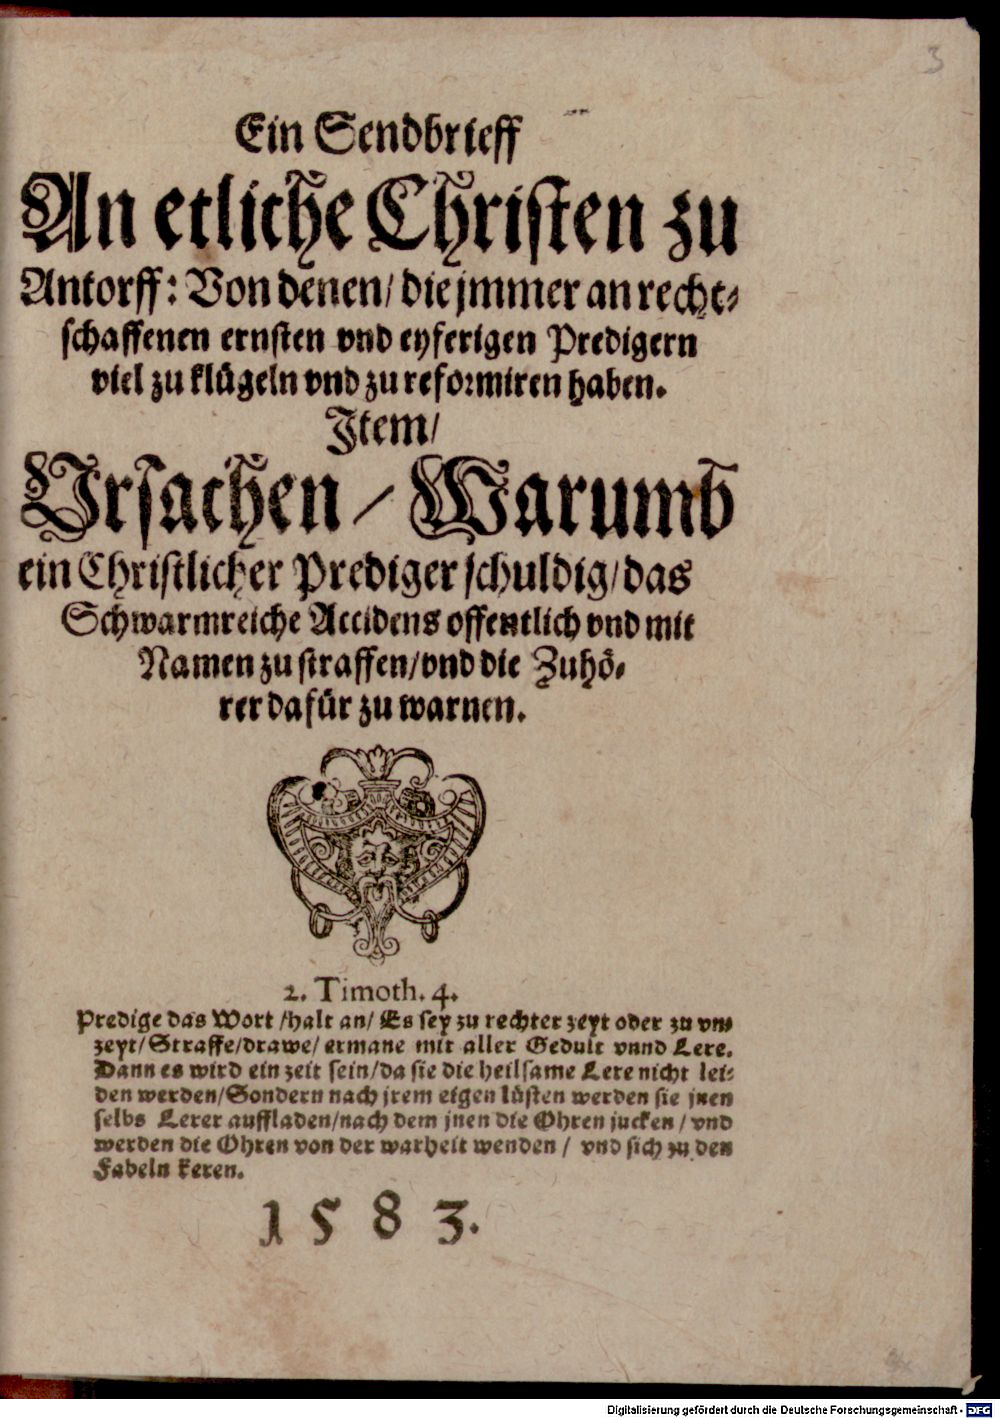 3
Ein Sendbrieff
An etliche Christen zu
Antorff: Von denen/ die jmmer an recht-
schaffenen ernsten vnd eyferigen Predigern
viel zu klügeln vnd zu reformiren haben.
Item/
Ursachen / Warumb
ein Christlicher Prediger schuldig/ das
Schwarmreiche Accidens offentlich vnd mit
Namen zu straffen/ vnd die Zuhö-
rer dafür zu warnen.
2. Timoth. 4.
Predige das Wort /halt an/ Es sey zu rechter zeyt oder zu vn-
zeyt/ Straffe/ drawe/ ermane mit aller Gedult vnnd Lere.
Dann es wird ein zeit sein/ da sie die heilsame Lere nicht lei-
den werden/ Sondern nach jrem eigen lüsten werden sie jnen
selbs Lerer auffladen/ nach dem jnen die Ohren jucken / vnd
werden die Ohren von der warheit wenden / vnd sich zu den
Fabeln keren.
1583.
Digitalisierung gefördert durch die Deutsche Forschungsgemeinschaft - DFG